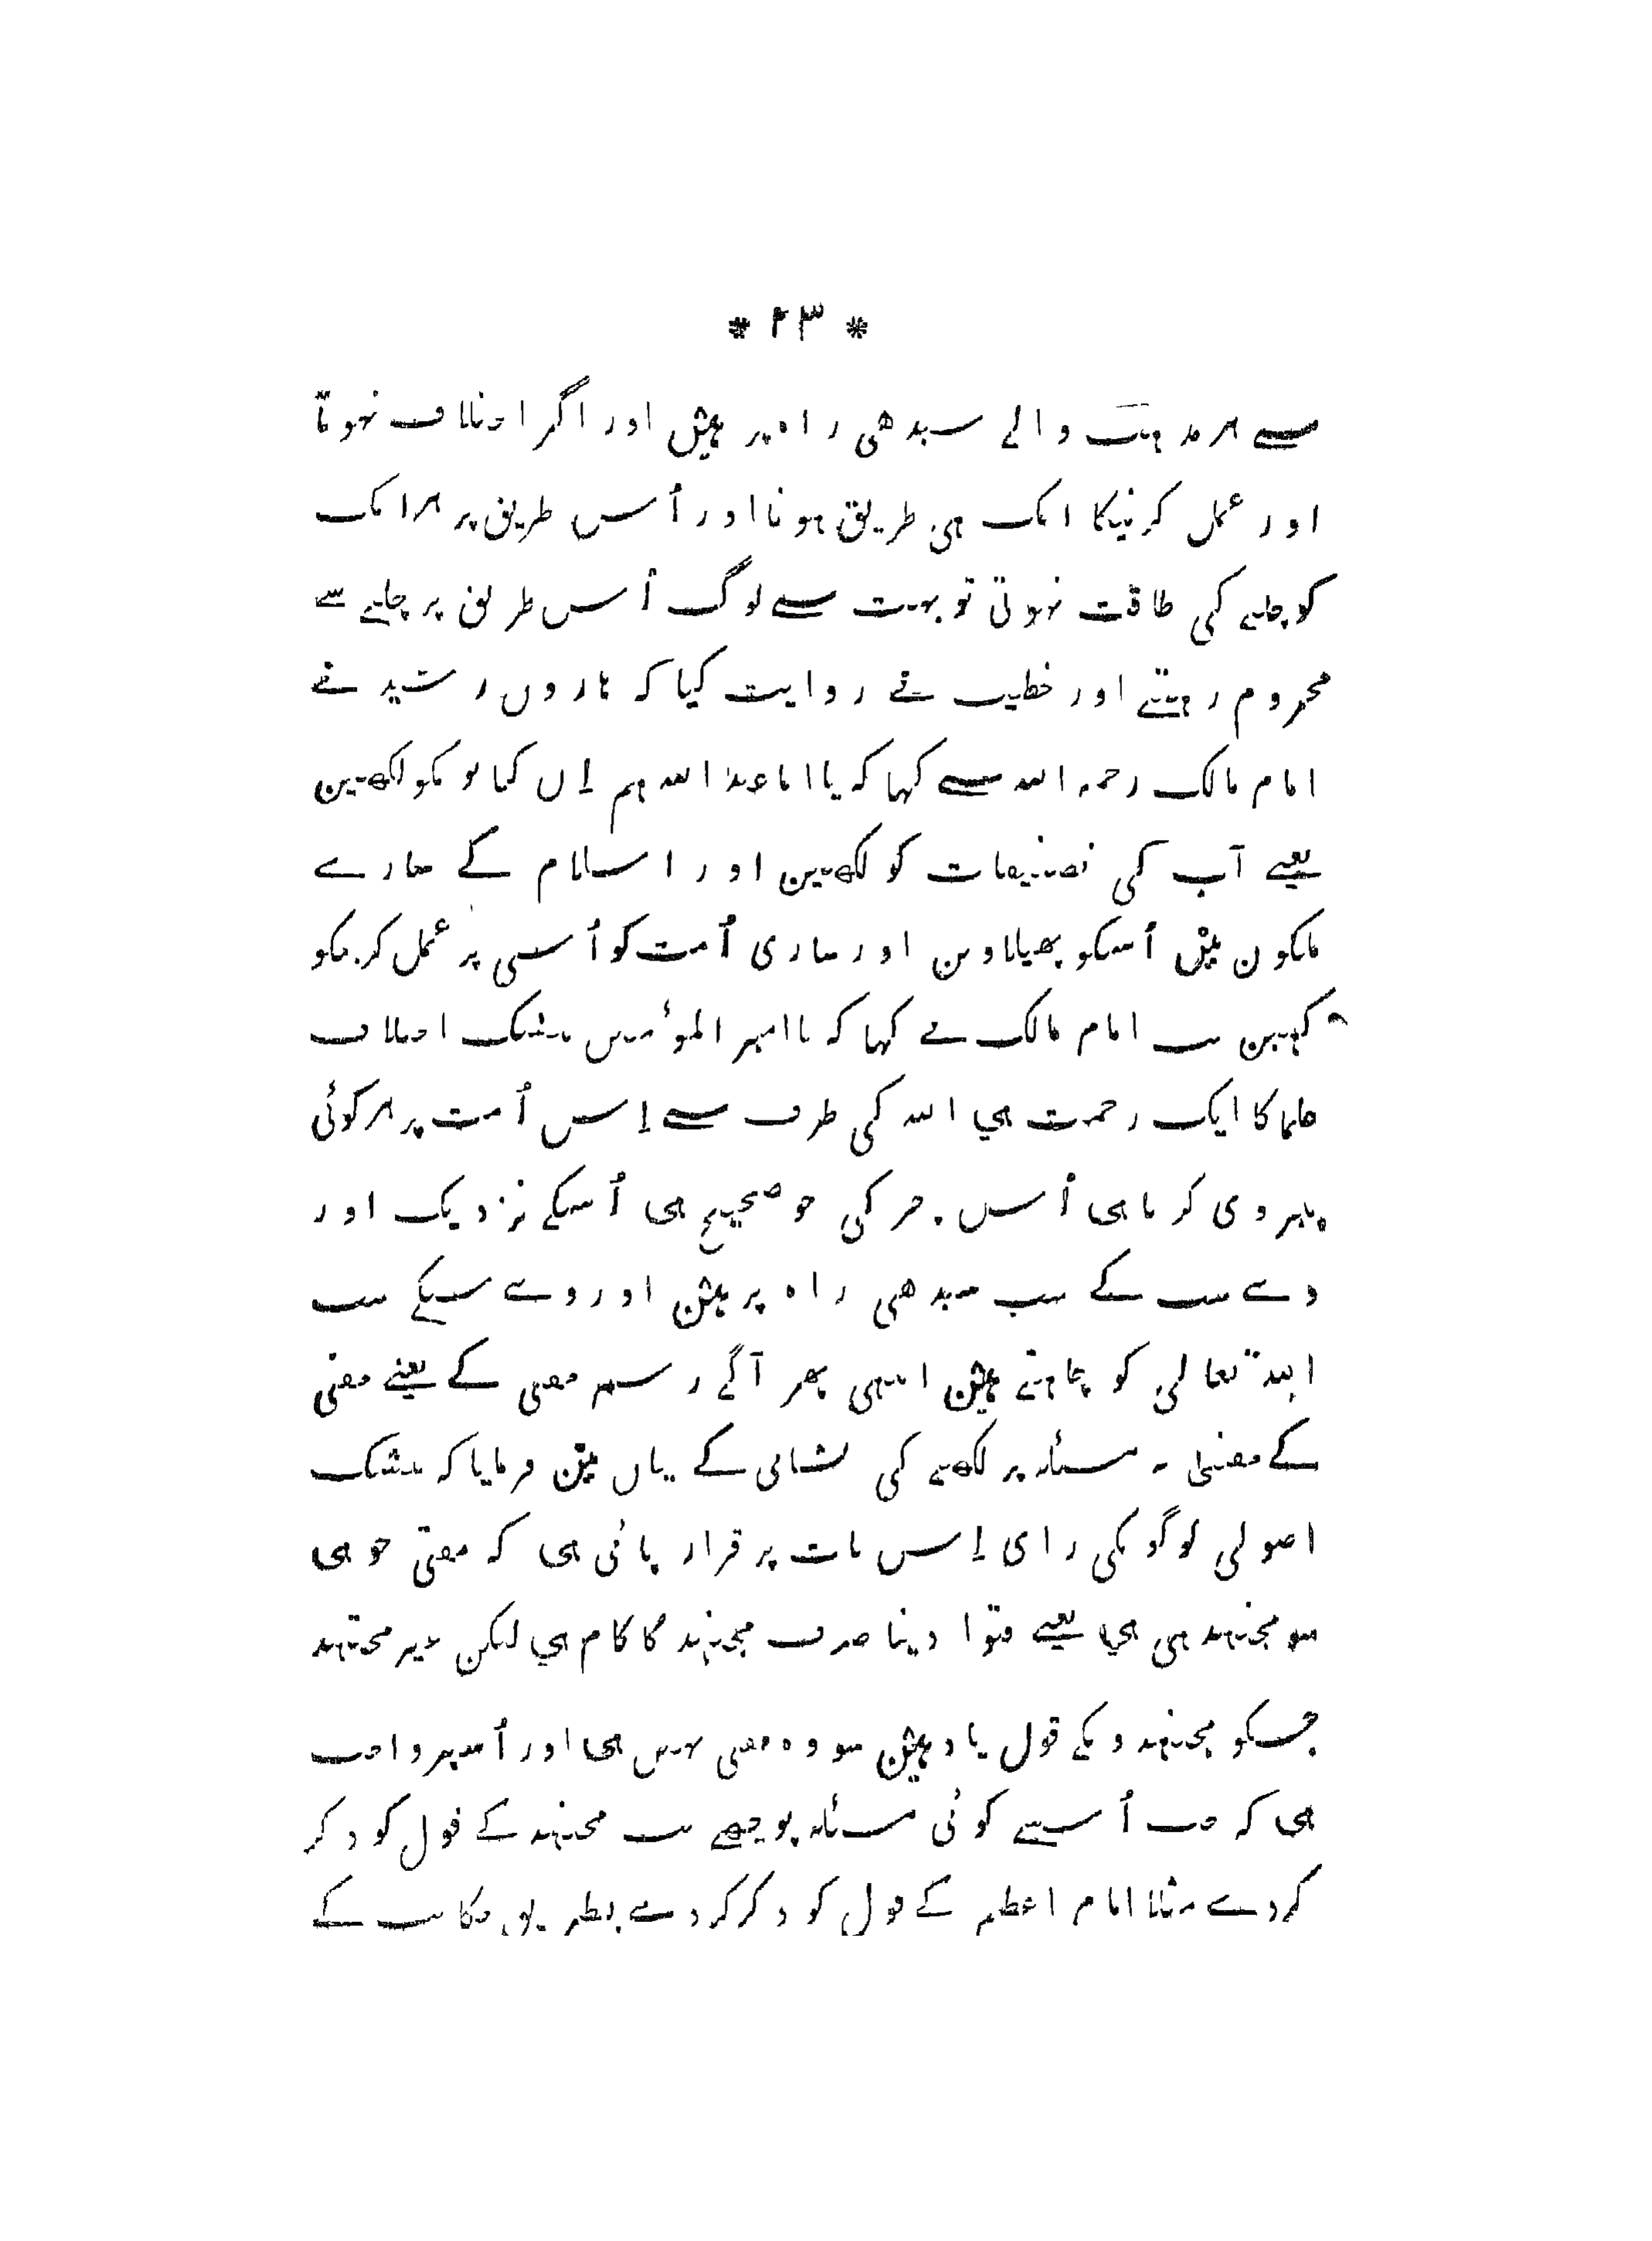 * ۲۳ *
سے ہر مذہب والے سیدھی راہ پر ہیں اور اگر اختلاف نہوتا
اور عمل کرنیکا ایک ہی طریق ہوتا اور اُس طریق پر ہر ایک
کو چلنے کی طاقت نہوتی تو بہت سے لوگ اُس طریق پر چلنے سے
محروم رہتے اور خطیب نے روایت کیا کہ ہارون رشید نے
امام مالک رحمہ اللہ سے کہا کہ یا ابا عبد اللہ ہم اِن کتابونکو لکھین
یعنے آپ کی تصنیفات کو لکھین اور اسلام کے سارے
ملکون میں اُسکو پھیلاوین اور ساری اُمت کو اُسی پر عمل کرنیکو
کہین تب امام مالک نے کہا کہ یا امیر المؤمنین بیشک اختلاف
علما کا ایک رحمت ہی اللہ کی طرف سے اِس اُمت پر ہر کوئی
پیروی کرتا ہی اُس چیز کی جو صحیح ہی اُسکے نزدیک اور
وے سب کے سب سیدھی راہ پر ہیں اور وے سبکے سب
اللہ تعالی کو چاہتے ہیں انتہی پھر آگے رسم مفتی کے یعنے مفتی
کے مسئلہ پر لکھنے کی نشانی کے بیان میں فرمایا کہ بیشک
اصولی لوگونکی رای اِس بات پر قرار پائی ہی کہ مفتی جو ہی
سو مجتہد ہی ہی یعنے فتوا دینا صرف مجتہد کا کام ہی لیکن غیر مجتہد
جسکو مجتہدونکے قول یاد ہیں سو وہ مفتی نہیں ہی اور اُسپر واجب
ہی کہ جب اُسسے کوئی مسئلہ پوچھے تب مجتہد کے قول کو ذکر
کردے مثلا امام اعظم کے قول کو ذکر کردے بطریق حکایت کے